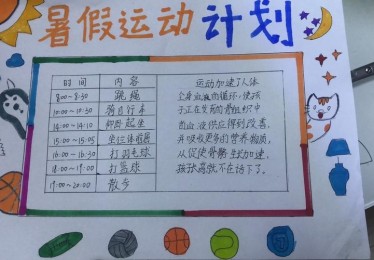 暑假运动计划
时间 内容
8:00~8:30 跳绳
10:00~10:30 骑自行车
14:00~14:10 仰卧起坐
15:00~15:05 坐位体前屈
16:00~16:30 打羽毛球
18:00~19:00 打篮球
19:00~20:00 散步
运动加速了人体
全身血液的循环,使孩
子正在发育的骨组织中
的血液供应得到改善,
并吸收更多的营养物质,
从促使骨骼生长加速,
孩子长高就不在话下了。